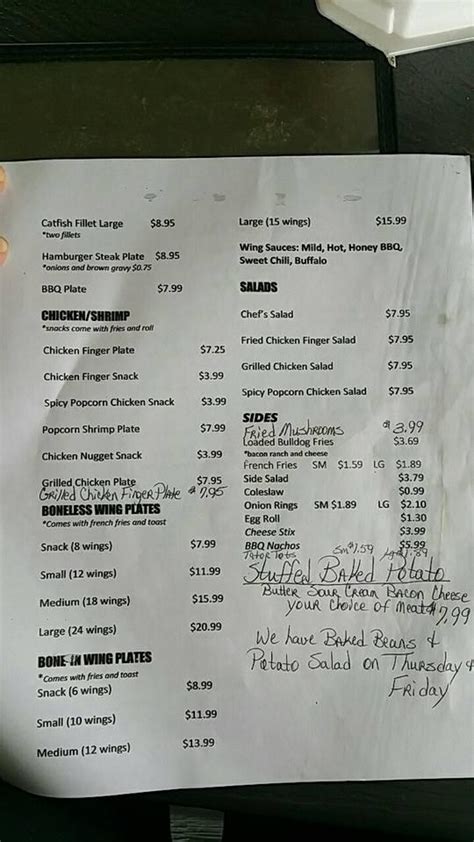 Catfish Fillet Large $8.95
*two fillets
Hamburger Steak Plate $8.95
*onions and brown gravy $0.75
BBQ Plate $7.99
CHICKEN/SHRIMP
*snacks come with fries and roll
Chicken Finger Plate $7.25
Chicken Finger Snack $3.99
Spicy Popcorn Chicken Snack $3.99
Popcorn Shrimp Plate $7.99
Chicken Nugget Snack $3.99
Grilled Chicken Plate $7.95
Grilled Chicken Finger Plate $7.95
BONELESS WING PLATES
*Comes with french fries and toast
Snack (8 wings) $7.99
Small (12 wings) $11.99
Medium (18 wings) $15.99
Large (24 wings) $20.99
BONE-IN WING PLATES
*Comes with fries and toast
Snack (6 wings) $8.99
Small (10 wings) $11.99
Medium (12 wings) $13.99
Large (15 wings) $15.99
Wing Sauces: Mild, Hot, Honey BBQ,
Sweet Chili, Buffalo
SALADS
Chef's Salad $7.95
Fried Chicken Finger Salad $7.95
Grilled Chicken Salad $7.95
Spicy Popcorn Chicken Salad $7.95
SIDES
Fried Mushrooms $3.99
Loaded Bulldog Fries $3.69
*bacon ranch and cheese
French Fries SM $1.59 LG $1.89
Side Salad $3.79
Coleslaw $0.99
Onion Rings SM $1.89 LG $2.10
Egg Roll $1.30
Cheese Stix $3.99
BBQ Nachos $5.99
Tator Tots Sm $1.59
Stuffed Baked Potato
Butter Sour Cream Bacon Cheese
your choice of meat $7.99
We have Baked Beans &
Potato Salad on Thursday &
Friday